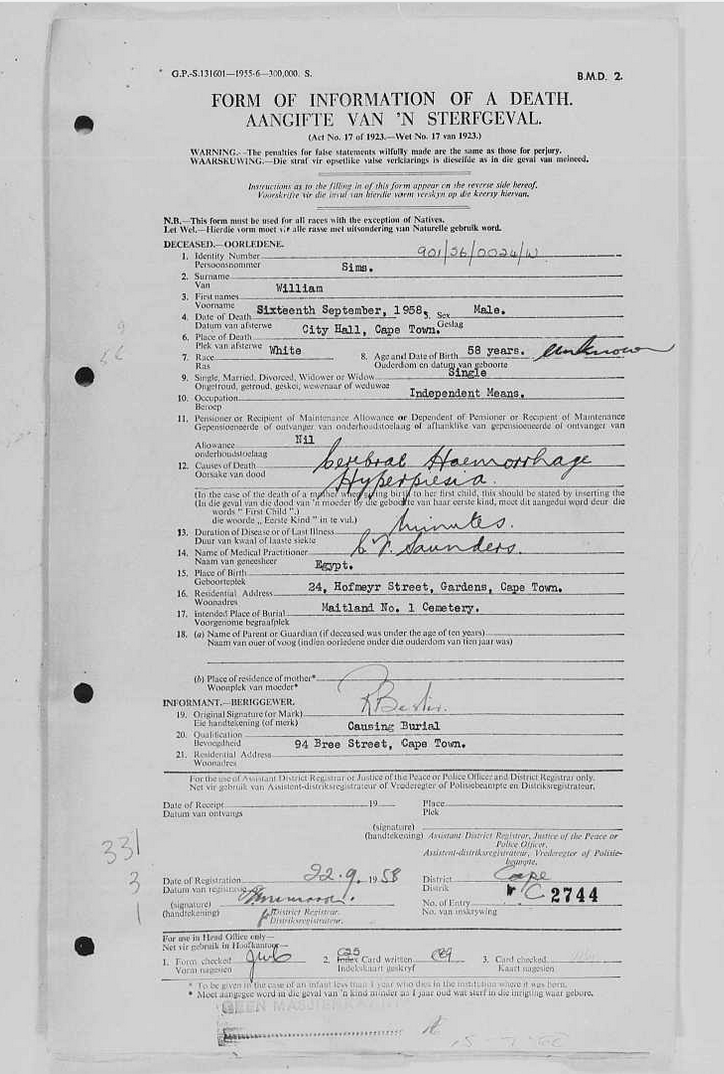 G.P.-S.131601—1955-6—300,000. S.
B.M.D. 2.
FORM OF INFORMATION OF A DEATH.
AANGIFTE VAN 'N STERFGEVAL.
(Act No. 17 of 1923.—Wet No. 17 van 1923.)
WARNING.—The penalties for false statements wilfully made are the same as those for perjury.
WAARSKUWING.—Die straf vir opsetlike valse verklarings is dieselfde as in die geval van meineed.
Instructions as to the filling in of this form appear on the reverse side hereof.
Voorskrifte vir die invul van hierdie vorm verskyn op die keersy hiervan.
N.B.—This form must be used for all races with the exception of Natives.
Let Wel.—Hierdie vorm moet vir alle rasse met uitsondering van Naturelle gebruik word.
DECEASED.—OORLEDENE.
1. Identity Number 901/56/0024/W
Persoonsnommer
Sims.
2. Surname
Van
William
3. First names
Voorname
Sixteenth September, 1958. 5. Sex Male.
4. Date of Death
Datum van afsterwe Geslag
City Hall, Cape Town.
6. Place of Death
Plek van afsterwe
White
7. Race 8. Age and Date of Birth 58 years. Unknown
Ras Ouderdom en datum van geboorte
Single
9. Single, Married, Divorced, Widower or Widow
Ongetroud, getroud, geskei, wewenaar of weduwee
Independent Means.
10. Occupation
Beroep
11. Pensioner or Recipient of Maintenance Allowance or Dependent of Pensioner or Recipient of Maintenance
Gepensioeneerde of ontvanger van onderhoudstoelaag of afhanklike van gepensioeneerde of ontvanger van
Nil
Allowance
onderhoudstoelaag
12. Causes of Death Cerebral Haemorrhage
Oorsake van dood
Hyperpiesia.
(In the case of the death of a mother when giving birth to her first child, this should be stated by inserting the
(In die geval van die dood van 'n moeder by die geboorte van haar eerste kind, moet dit aangedui word deur die
words "First Child".)
die woorde „Eerste Kind" in te vul.)
13. Duration of Disease or of Last Illness minutes.
Duur van kwaal of laaste siekte
14. Name of Medical Practitioner Saunders.
Naam van geneesheer
Egypt.
15. Place of Birth
Geboorteplek
24, Hofmeyr Street, Gardens, Cape Town.
16. Residential Address
Woonadres
Maitland No. 1 Cemetery.
17. Intended Place of Burial
Voorgenome begraafplek
18. (a) Name of Parent or Guardian (if deceased was under the age of ten years)
Naam van ouer of voog (indien oorledene onder die ouderdom van tien jaar was)
(b) Place of residence of mother*
Woonplek van moeder*
INFORMANT.—BERIGGEWER.
19. Original Signature (or Mark)
Eie handtekening (of merk)
Causing Burial
20. Qualification
Bevoegdheid
94 Bree Street, Cape Town.
21. Residential Address
Woonadres
For the use of Assistant District Registrar or Justice of the Peace or Police Officer and District Registrar only.
Net vir gebruik van Assistent-distriksregistrateur of Vrederegter of Polisiebeampte en Distriksregistrateur.
Date of Receipt 19 Place
Datum van ontvangs Plek
(signature)
(handtekening) Assistant District Registrar, Justice of the Peace or
Police Officer.
Assistent-distriksregistrateur, Vrederegter of Polisie-
beampte.
331
3
1
Date of Registration 22.9. 1958 District Cape
Datum van registrasie Distrik
(signature) No. of Entry C 2744
(handtekening) District Registrar. No. van inskrywing
Distriksregistrateur.
For use in Head Office only—
Net vir gebruik in Hoofkantoor—
1. Form checked 2. Index Card written 3. Card checked
Vorm nagesien Indekskaart geskryf Kaart nagesien
* To be given in the case of an infant less than 1 year who dies in the institution where it was born.
* Moet aangegee word in die geval van 'n kind minder as 1 jaar oud wat sterf in die inrigting waar gebore.